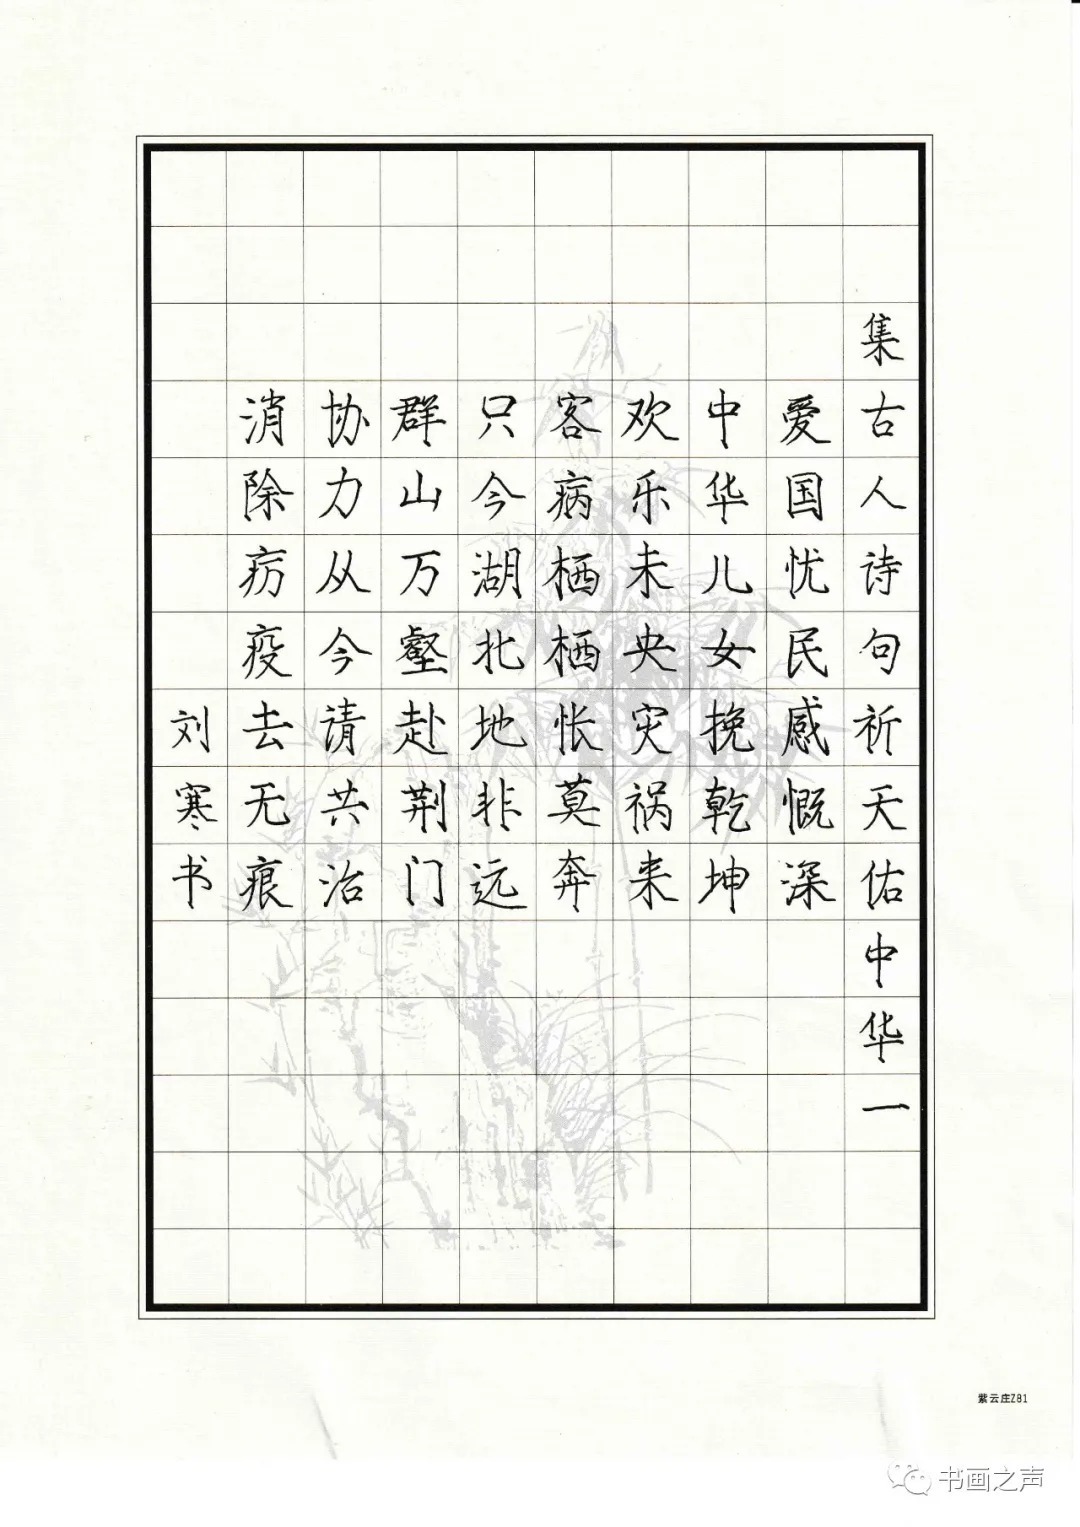 集古人诗句祈天佑中华一
爱国忧民感慨深
中华儿女挽乾坤
欢乐未央灾祸来
客病栖栖怅莫奔
只今湖北地非远
群山万壑赴荆门
协力从今请共治
消除疠疫去无痕
刘寒书
紫云庄Z81
书画之声